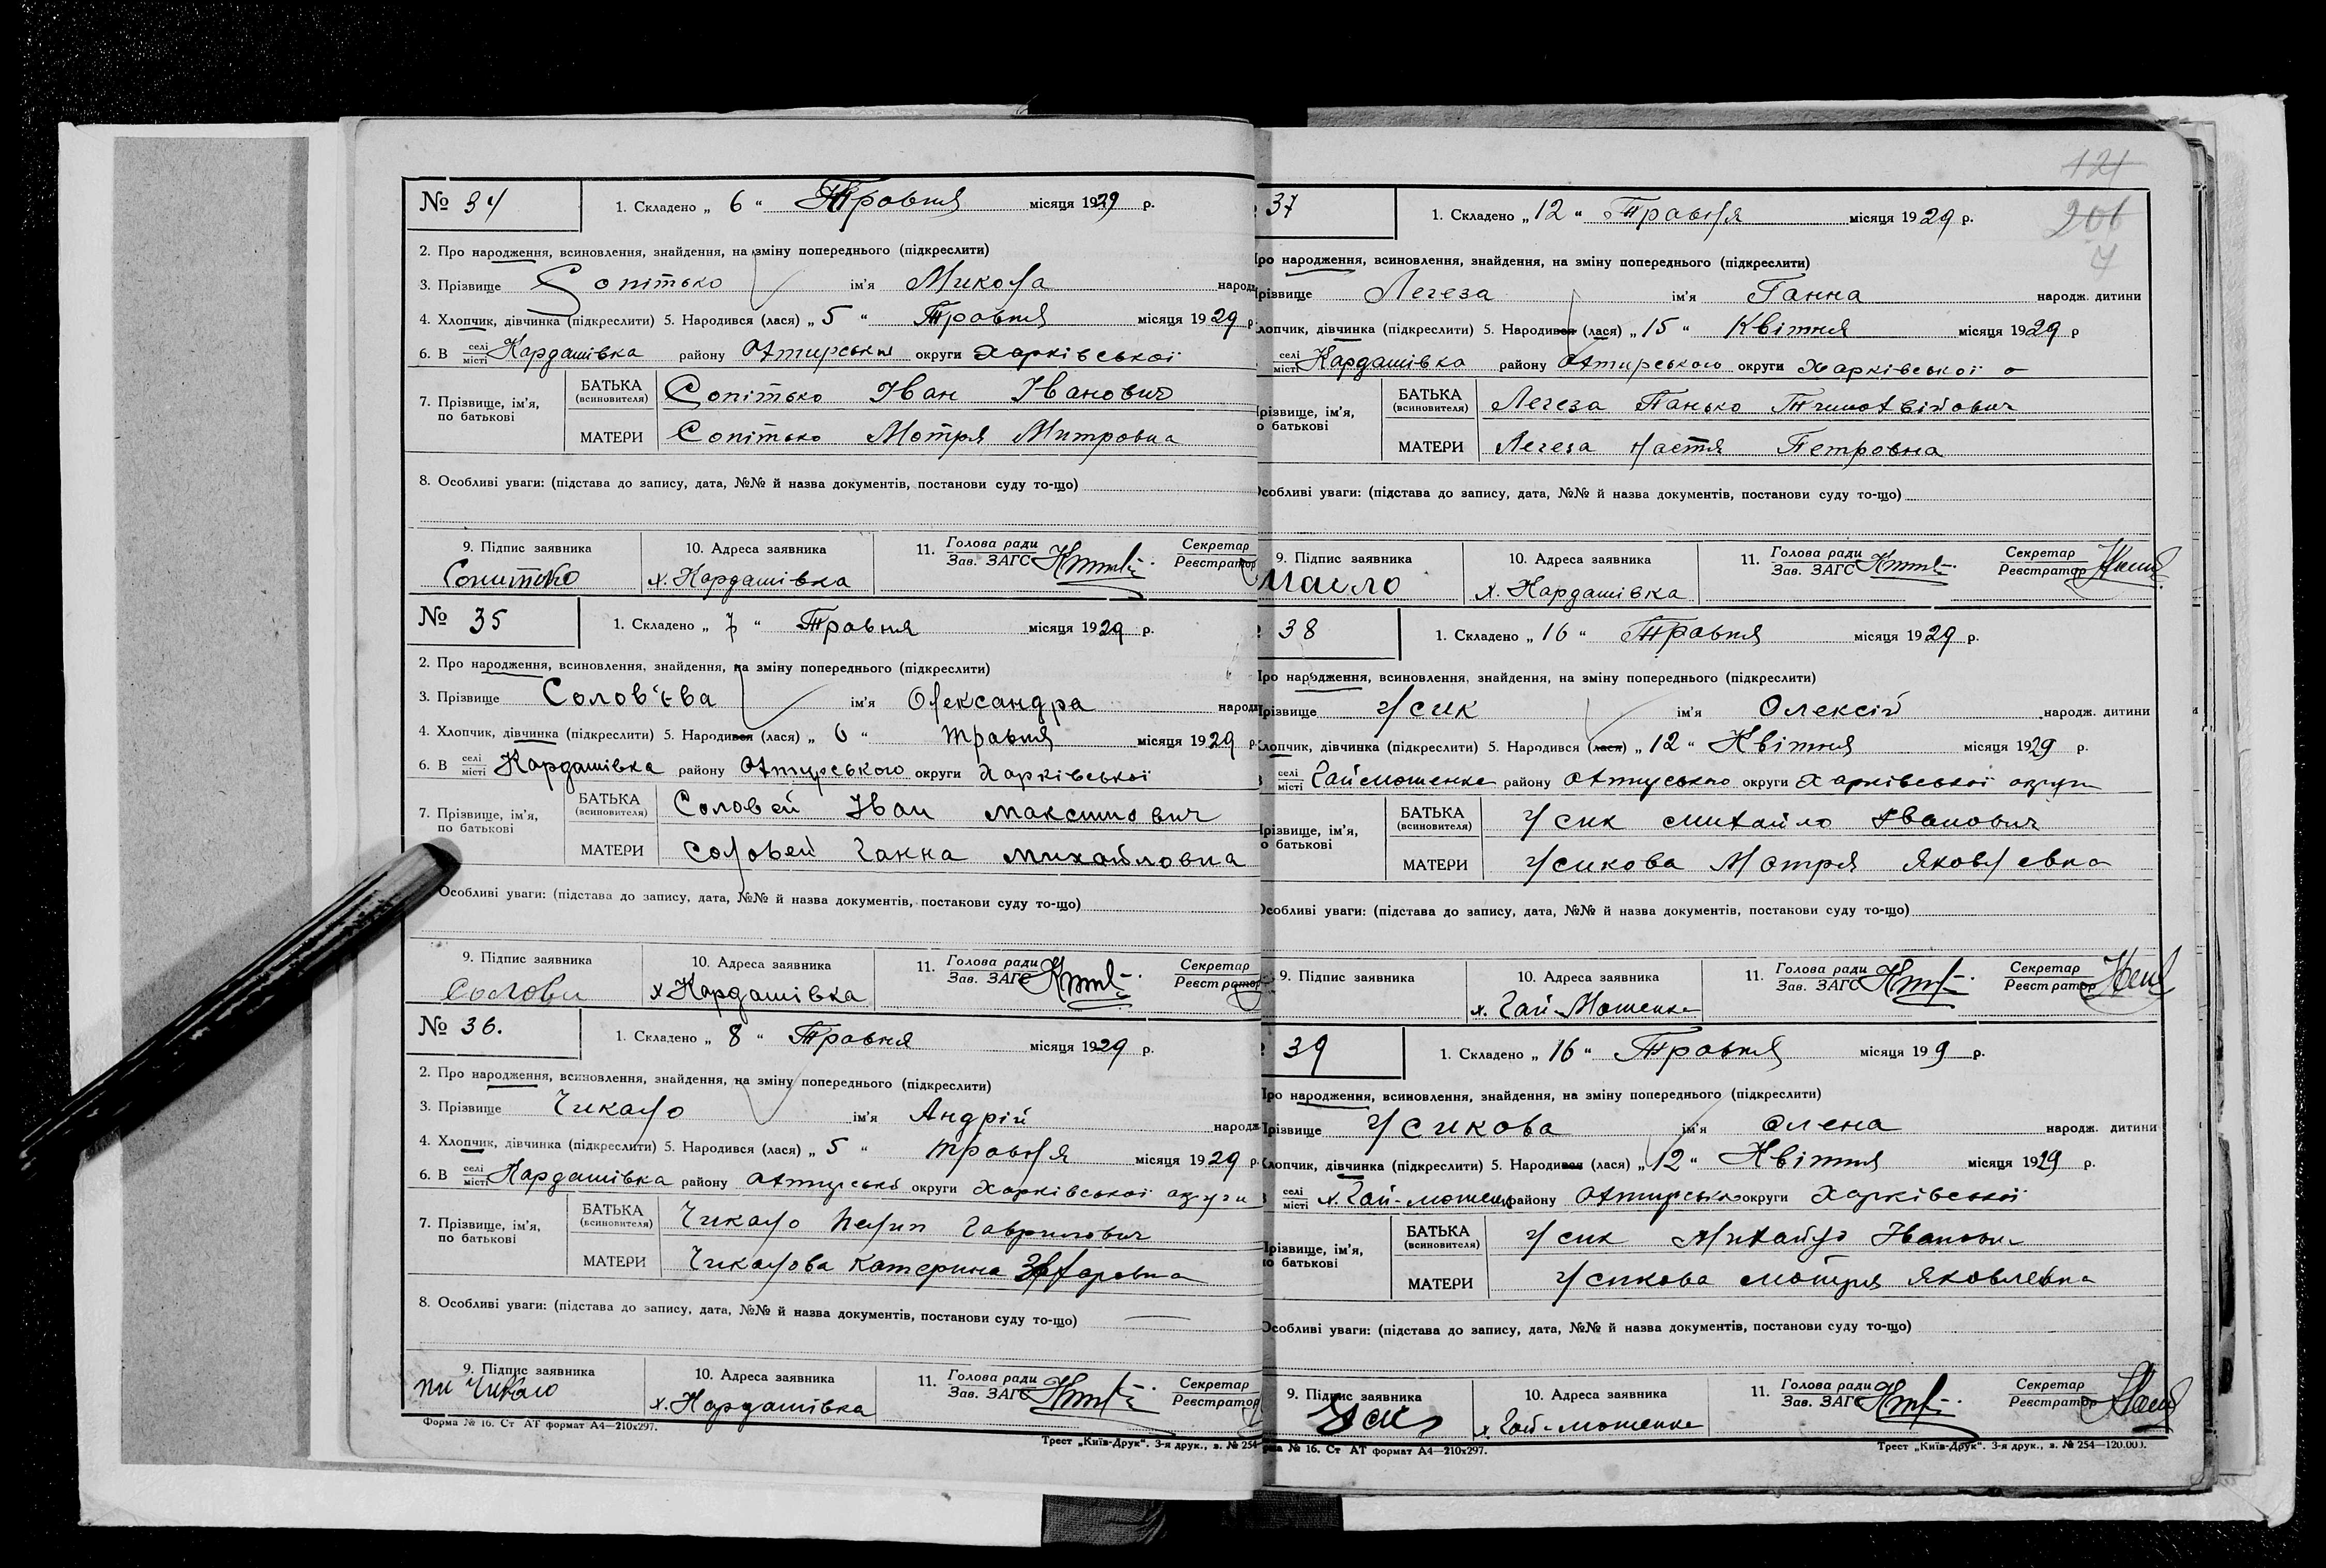 № 34
1. Складено „ 6 “ Травня місяця 1929 р.
2. Про народження, всиновлення, знайдення, на зміну попереднього (підкреслити)
3. Прізвище Сопітько ім'я Микола народж
4. Хлопчик, дівчинка (підкреслити) 5. Народився (лася) „ 5 “ Травня місяця 1929 р.
6. В селі місті Кардашівка району округи Харківської
7. Прізвище, ім'я, по батькові
БАТЬКА (всиновителя) Сопітько Іван Іванович
МАТЕРИ Сопітько Мотря Митровна
8. Особливі уваги: (підстава до запису, дата, №№ й назва документів, постанови суду то-що)
9. Підпис заявника 10. Адреса заявника 11. Голова ради Зав. ЗАГС Секретар Реєстратор
Сопитко х. Кардашівка
№ 35
1. Складено „ 7 “ Травня місяця 1929 р.
2. Про народження, всиновлення, знайдення, на зміну попереднього (підкреслити)
3. Прізвище Солов'єва ім'я Олександра народж
4. Хлопчик, дівчинка (підкреслити) 5. Народився (лася) „ 6 “ травня місяця 1929 р.
6. В селі місті Кардашівка району Охтирського округи Харківської
7. Прізвище, ім'я, по батькові
БАТЬКА (всиновителя) Соловей Іван Максимович
МАТЕРИ Соловей Ганна Михайловна
Особливі уваги: (підстава до запису, дата, №№ й назва документів, постанови суду то-що)
9. Підпис заявника 10. Адреса заявника 11. Голова ради Зав. ЗАГС Секретар Реєстратор
х Кардашівка
№ 36.
1. Складено „ 8 “ Травня місяця 1929 р.
2. Про народження, всиновлення, знайдення, на зміну попереднього (підкреслити)
3. Прізвище Чикало ім'я Андрій народж
4. Хлопчик, дівчинка (підкреслити) 5. Народився (лася) „ 5 “ травня місяця 1929 р.
6. В селі місті Кардашівка району округи Харківської округи
7. Прізвище, ім'я, по батькові
БАТЬКА (всиновителя) Чикало Гаврилович
МАТЕРИ Чикалова Катерина Захаровна
8. Особливі уваги: (підстава до запису, дата, №№ й назва документів, постанови суду то-що)
9. Підпис заявника 10. Адреса заявника 11. Голова ради Зав. ЗАГС Секретар Реєстратор
Чикало х. Кардашівка
Форма № 16. Ст АТ формат А4—210х297.
Трест „Київ-Друк“. 3-я друк., з. № 254
121
206
7
37
1. Складено „ 12 “ Травня місяця 1929 р.
ро народження, всиновлення, знайдення, на зміну попереднього (підкреслити)
різвище Легеза ім'я Ганна народж. дитини
лопчик, дівчинка (підкреслити) 5. Народився (лася) „ 15 “ Квітня місяця 1929 р
селі місті Кардашівка району Охтирського округи Харківської о
різвище, ім'я, о батькові
БАТЬКА (всиновителя) Легеза Панько
МАТЕРИ Легеза Настя Петровна
Особливі уваги: (підстава до запису, дата, №№ й назва документів, постанови суду то-що)
9. Підпис заявника 10. Адреса заявника 11. Голова ради Зав. ЗАГС Секретар Реєстратор
х. Кардашівка
38
1. Складено „ 16 “ Травня місяця 1929 р.
ро народження, всиновлення, знайдення, на зміну попереднього (підкреслити)
різвище Усик ім'я Олексій народж. дитини
лопчик, дівчинка (підкреслити) 5. Народився (лася) „ 12 “ Квітня місяця 1929 р.
селі місті Гаймошенка району округи Харківської округи
різвище, ім'я, о батькові
БАТЬКА (всиновителя) Усик Михайло Іванович
МАТЕРИ Усикова Мотря Яковлевна
Особливі уваги: (підстава до запису, дата, №№ й назва документів, постанови суду то-що)
9. Підпис заявника 10. Адреса заявника 11. Голова ради Зав. ЗАГС Секретар Реєстратор
х. Гай-Мошенка
39
1. Складено „ 16 “ Травня місяця 19 9 р.
ро народження, всиновлення, знайдення, на зміну попереднього (підкреслити)
Прізвище Усикова ім'я Олена народж. дитини
Хлопчик, дівчинка (підкреслити) 5. Народився (лася) „ 12 “ Квітня місяця 1929 р.
селі місті х. Гай-мошен району округи Харківської
Прізвище, ім'я, по батькові
БАТЬКА (всиновителя) Усик Михайло Іванович
МАТЕРИ Усикова Мотря Яковлевна
Особливі уваги: (підстава до запису, дата, №№ й назва документів, постанови суду то-що)
9. Підпис заявника 10. Адреса заявника 11. Голова ради Зав. ЗАГС Секретар Реєстратор
х. Гай-мошенка
ма № 16. Ст АТ формат А4—210х297.
Трест „Київ-Друк“. 3-я друк., з. № 254—120.000.